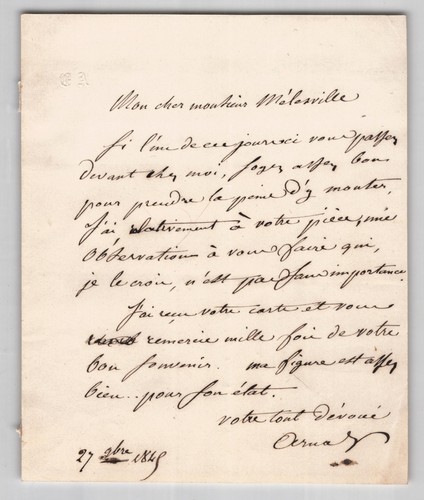 Mon cher monsieur Mélesville
Si l'un de ces jours-ci vous passez
devant chez moi, soyez assez bon
pour prendre la peine d'y monter.
J'ai relativement à votre pièce, une
observation à vous faire qui,
je le crois, n'est pas sans importance
J'ai reçu votre carte et vous
remercie mille fois de votre
bon souvenir. ma figure est assez
bien.. pour son état.
votre tout dévoué
Arnal
27 9bre 1845